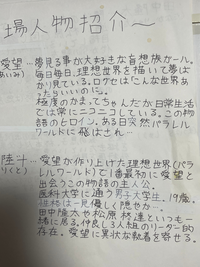 場人物紹介〜
愛望…夢見る事が大好きな妄想族ガール。
(あいみ)毎日毎日、理想世界を描いて夢ば
かり見ている。口グセは「こんな世界あ
ったらいいのに。」
極度のかまってちゃんだが日常生活
では常にニコニコしている。この物
語のヒロイン。ある日突然パラレル
ワールドに飛ばされ…
陸斗…愛望が作り上げた理想世界(パラ
(りくと)レルワールド)で1番最初に愛望と
出会うこの物語の主人公。
医科大学に通う男子大学生。19歳。
性格は一見優しく隠せか
田中隆太や松原 柊達といつも一
緒に居る。仲良し3人組のリーダー的
存在。愛望に異状な執着を寄せる。